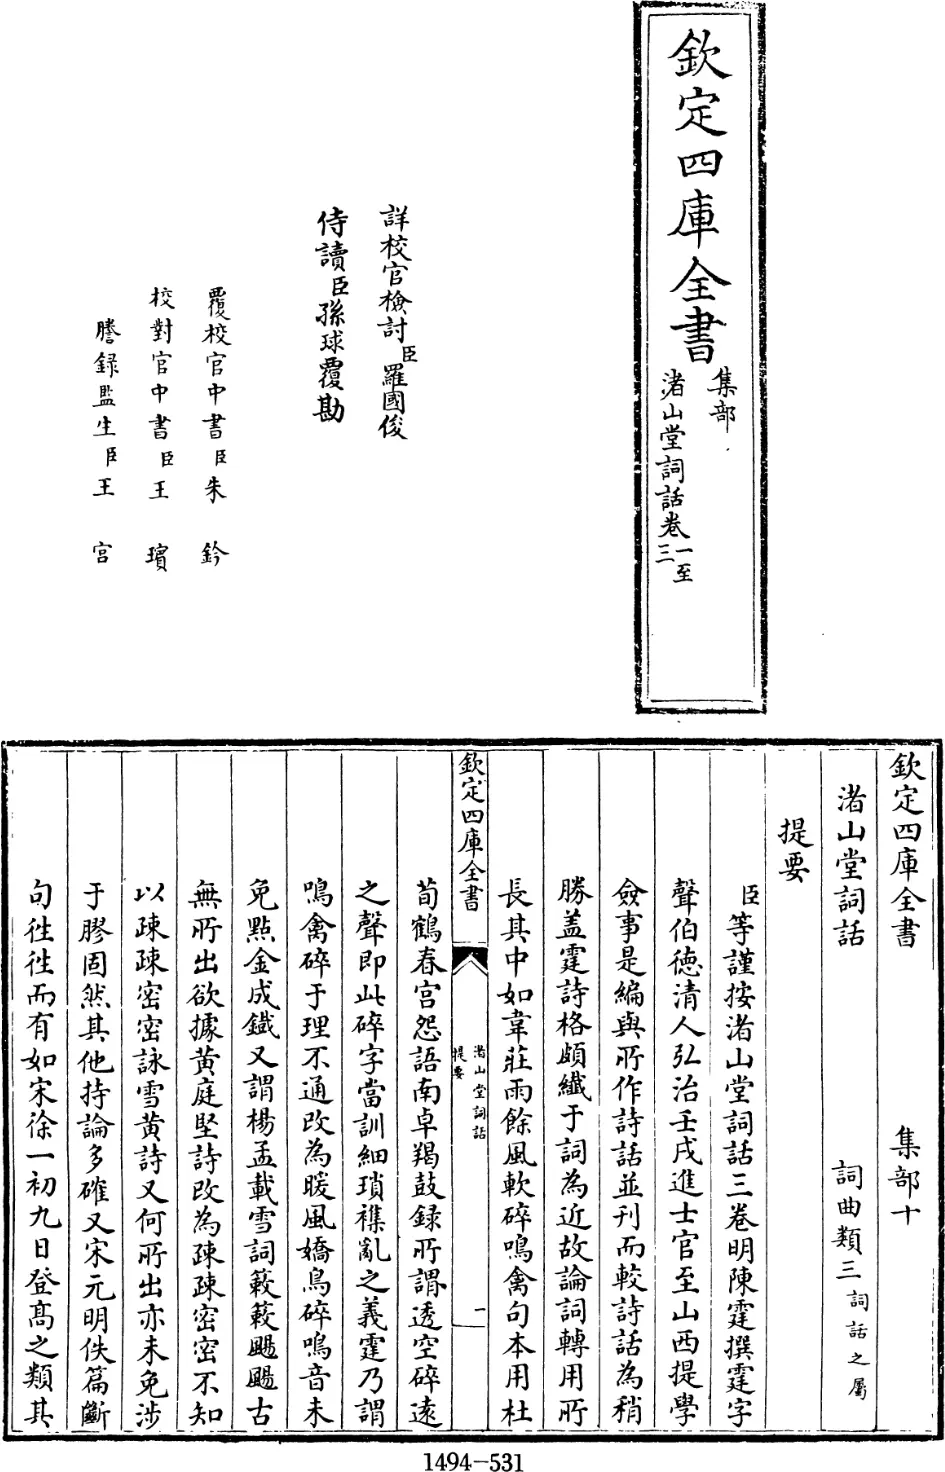 欽定四庫全書
集部
渚山堂詞話卷一至三
詳校官檢討臣羅國俊
侍讀臣孫球覆勘
覆校官中書臣朱鈐
校對官中書臣王璸
謄錄監生臣王宮
欽定四庫全書 集部十
渚山堂詞話 詞曲類三詞話之屬
提要
臣等謹按渚山堂詞話三卷明陳霆撰霆字
聲伯德清人弘治壬戌進士官至山西提學
僉事是編與所作詩話並刊而較詩話為稍
勝盖霆詩格頗纖于詞為近故論詞轉用所
長其中如韋莊雨餘風軟碎鳴禽句本用杜
欽定四庫全書
渚山堂詞話
提要
一
荀鶴春宮怨語南卓羯鼓録所謂透空碎遠
之聲即此碎字當訓細瑣襍亂之義霆乃謂
鳴禽碎于理不通改為暖風嬌鳥碎鳴音未
免點金成鐵又謂楊孟載雪詞簌簌颺颺古
無所出欲據黄庭堅詩改為疎疎密密不知
以疎疎密密詠雪黄詩又何所出亦未免涉
于膠固然其他持論多確又宋元明佚篇斷
句徃徃而有如宋徐一初九日登髙之類其
1494-531